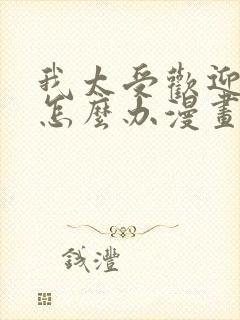 我太受歡迎
怎麼办漫畫
錢灃